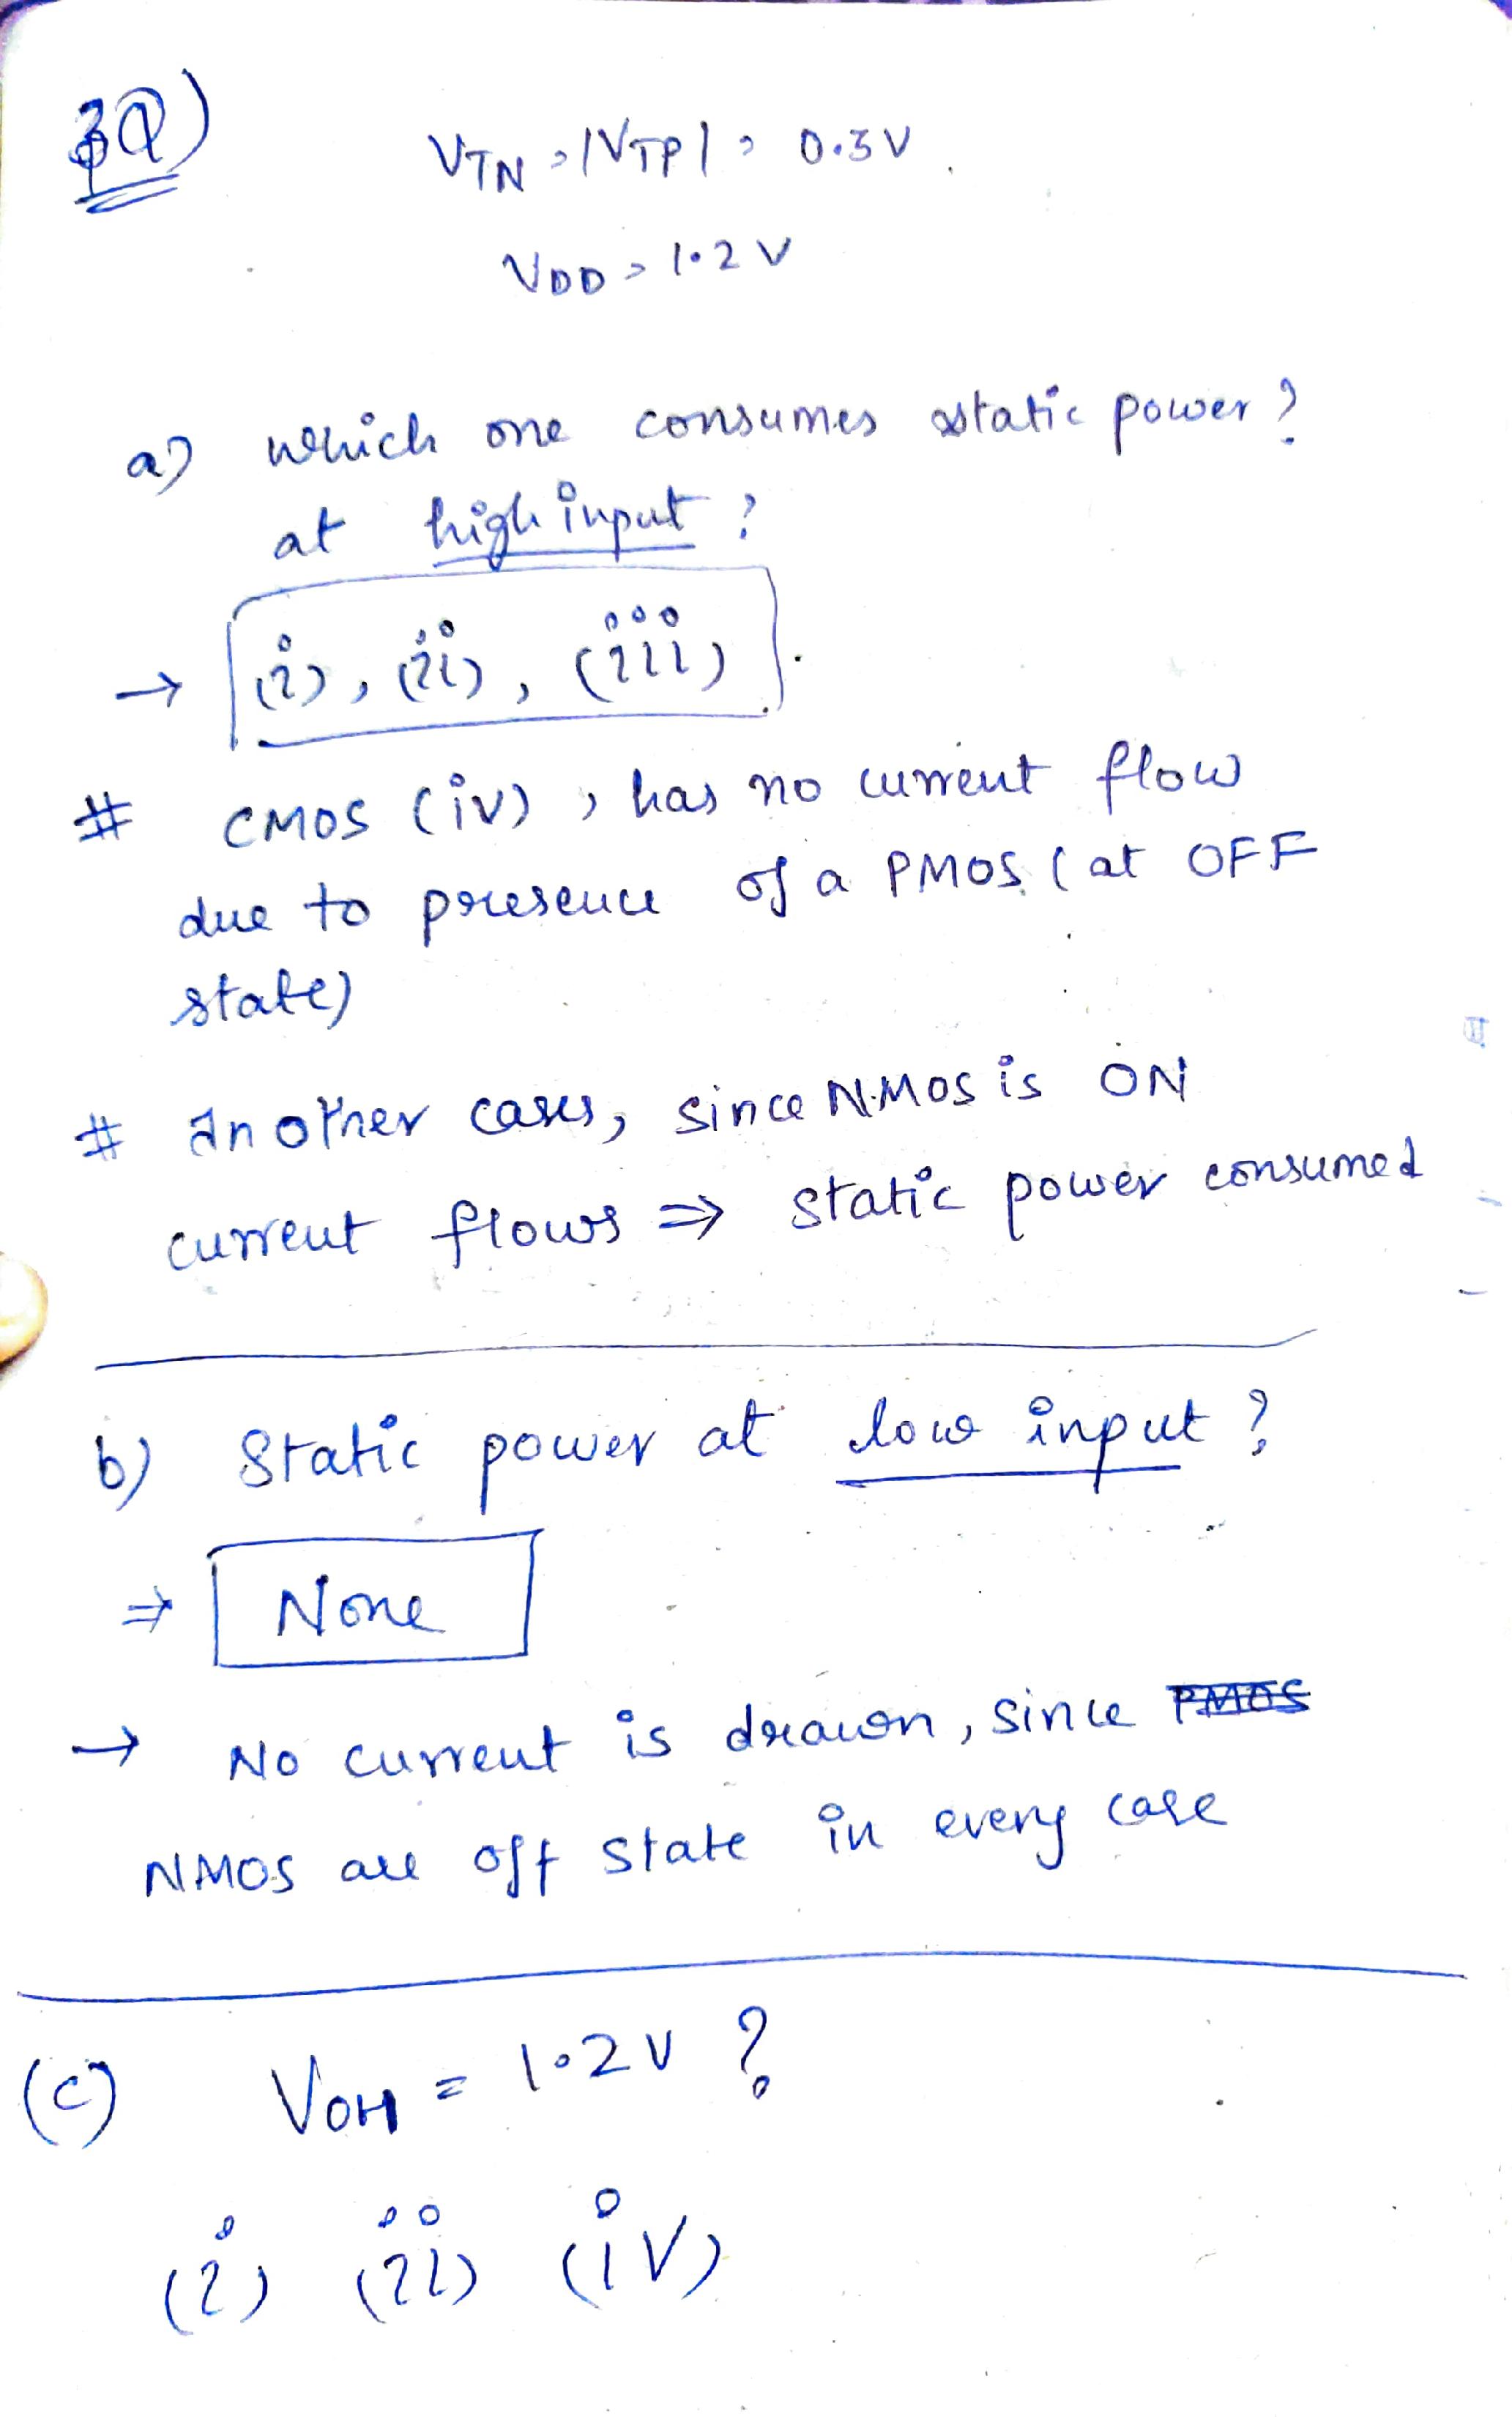 3Q)
VTN = |VTP| = 0.3V.
VDD = 1.2V
a) which one consumes static power?
at high input?
→ (i), (ii), (iii).
# CMOS (iv), has no current flow
due to presence of a PMOS (at OFF
state)
# In other cases, since NMOS is ON
current flows ⇒ static power consumed
b) Static power at low input?
⇒ None
→ No current is drawn, since PMOS
NMOS are off state in every case
(c) VOH = 1.2V ?
(i) (ii) (iv)